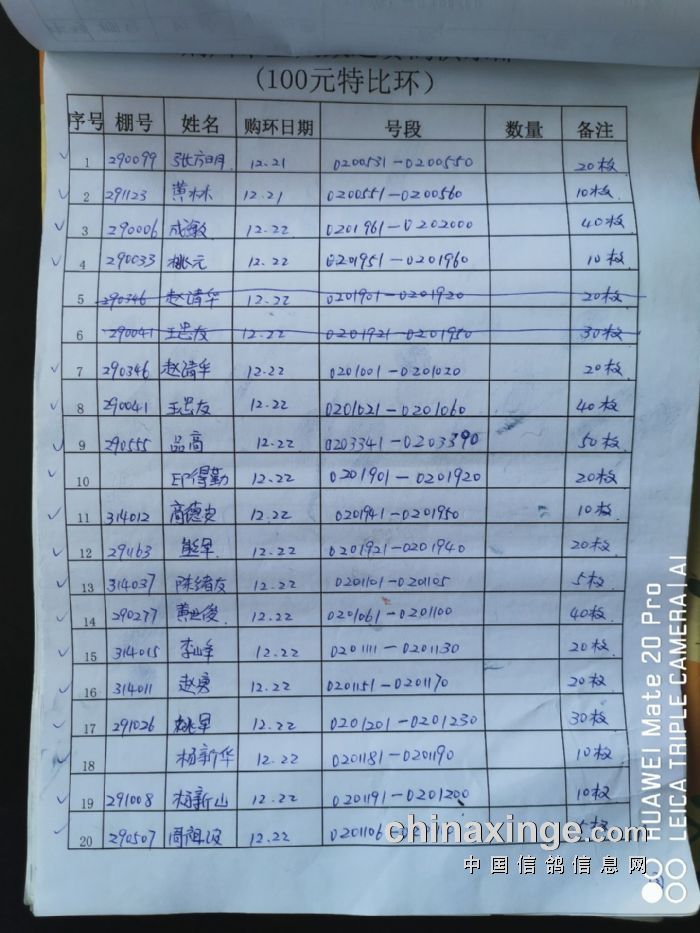 (100元特比环)
序号 棚号 姓名 购环日期 号段 数量 备注
1 290099 张方明 12.21 0200531-0200550 20枚
2 291123 黄林 12.21 0200551-0200560 10枚
3 290006 成敏 12.22 0201961-0202000 40枚
4 290033 姚元 12.22 0201951-0201960 10枚
5 290346 赵清华 12.22 0201901-0201920 20枚
6 290041 王忠友 12.22 0201921-0201950 30枚
7 290346 赵清华 12.22 0201001-0201020 20枚
8 290041 王忠友 12.22 0201021-0201060 40枚
9 290555 品高 12.22 0203341-0203390 50枚
10 印得勤 12.22 0201901-0201920 20枚
11 314012 高德安 12.22 0201941-0201950 10枚
12 291163 熊军 12.22 0201921-0201940 20枚
13 314037 陈绪友 12.22 0201101-0201105 5枚
14 290277 黄世俊 12.22 0201061-0201100 40枚
15 314015 李峰 12.22 0201111-0201130 20枚
16 314011 赵勇 12.22 0201151-0201170 20枚
17 291026 姚军 12.22 0201201-0201230 30枚
18 杨新华 12.22 0201181-0201190 10枚
19 291008 杨新山 12.22 0201191-0201200 10枚
20 290507 12.22 020110 5枚
chinaxinge.com
中国信鸽信息网
HUAWEI Mate 20 Pro
LEICA TRIPLE CAMERA | AI